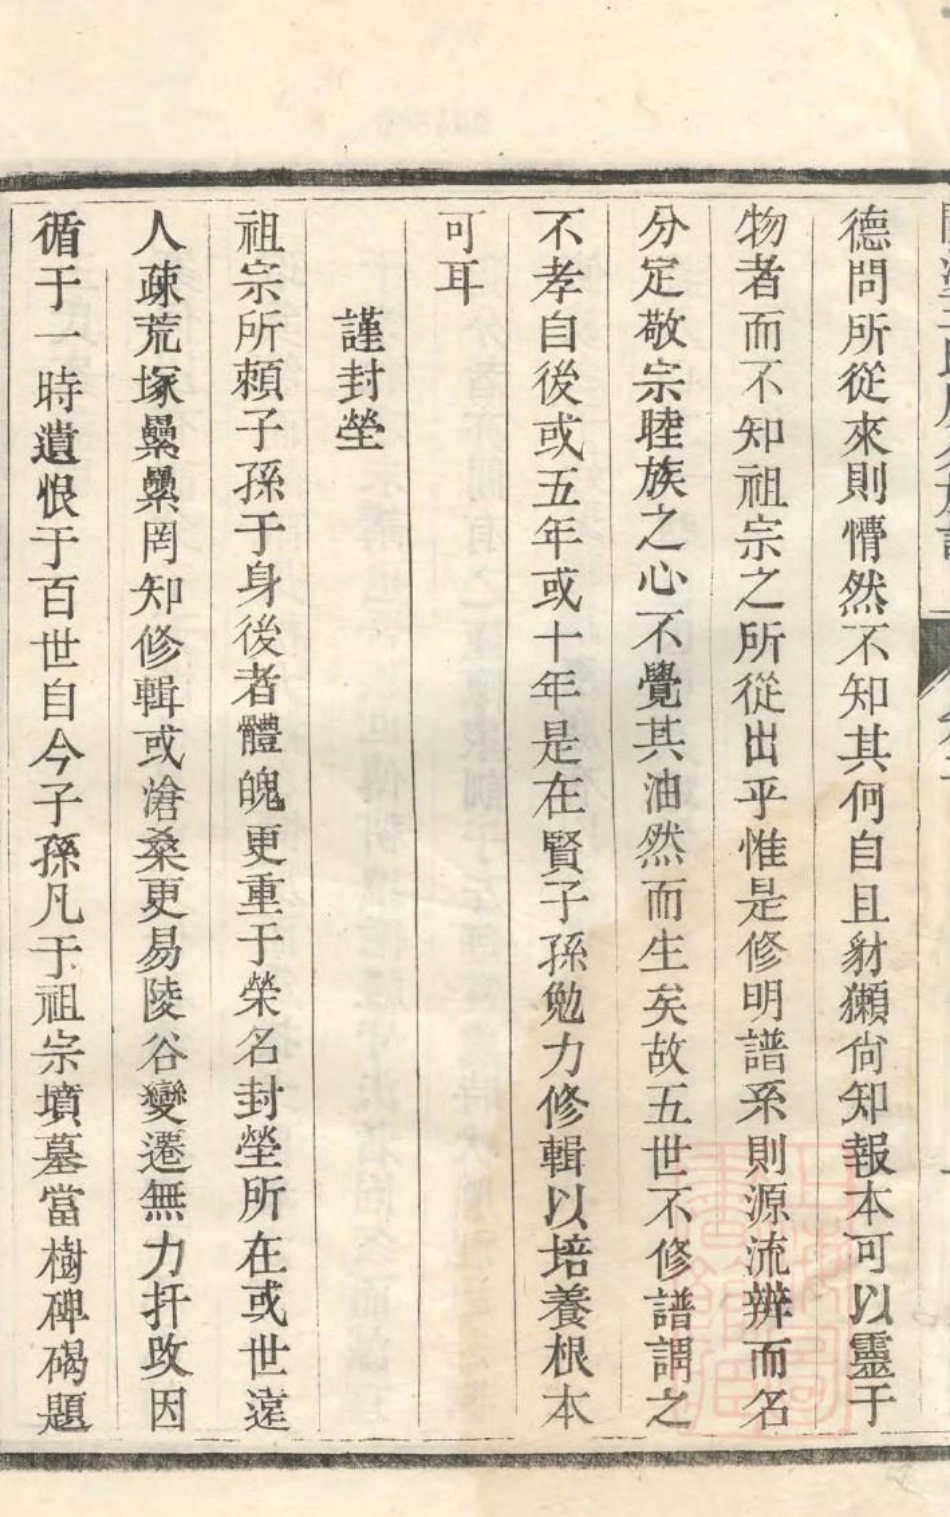 德問所從來則懵然不知其何自且豺獺尙知報本可以靈于
物者而不知祖宗之所從出乎惟是修明譜系則源流辨而名
分定敬宗睦族之心不覺其油然而生矣故五世不修譜謂之
不孝自後或五年或十年是在賢子孫勉力修輯以培養根本
可耳
謹封塋
祖宗所賴子孫于身後者體魄更重于榮名封塋所在或世遠
人疎荒塚纍纍罔知修輯或滄桑更易陵谷變遷無力扞攺因
循于一時遺恨于百世自今子孫凡于祖宗墳墓當樹碑碣題